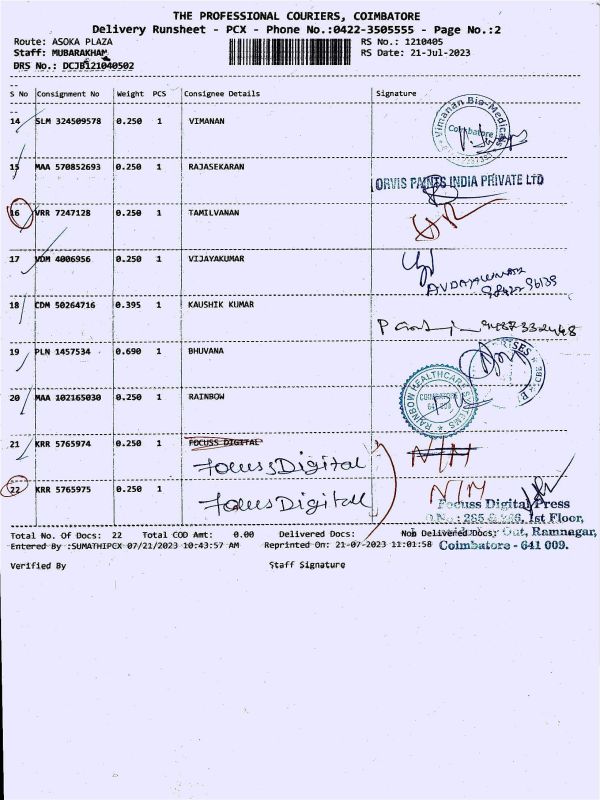 THE PROFESSIONAL COURIERS, COIMBATORE
Delivery Runsheet - PCX - Phone No.:0422-3505555 - Page No.:2
Route: ASOKA PLAZA RS No.: 1210405
Staff: MUBARAKHAM RS Date: 21-Jul-2023
DRS No.: DCJB121040502
S No Consignment No Weight PCS Consignee Details Signature
14 SLM 324509578 0.250 1 VIMANAN
Vimanan Bio-Medicals
Coimbatore
15 MAA 570852693 0.250 1 RAJASEKARAN
ORVIS PAINTS INDIA PRIVATE LTD
16 VRR 7247128 0.250 1 TAMILVANAN
17 VDM 4006956 0.250 1 VIJAYAKUMAR
18 CDM 50264716 0.395 1 KAUSHIK KUMAR
19 PLN 1457534 0.690 1 BHUVANA
20 MAA 102165030 0.250 1 RAINBOW
RAINBOW HEALTHCARE SYSTEMS
COIMBATORE
21 KRR 5765974 0.250 1 FOCUSS DIGITAL N/H
Focuss Digital
22 KRR 5765975 0.250 1 Focuss Digital N/H
Focuss Digital Press
1st Floor,
Out, Ramnagar,
Coimbatore - 641 009.
Total No. Of Docs: 22 Total COD Amt: 0.00 Delivered Docs: Non Delivered Docs:
Entered By :SUMATHIPCX 07/21/2023 10:43:57 AM Reprinted On: 21-07-2023 11:01:58
Verified By Staff Signature